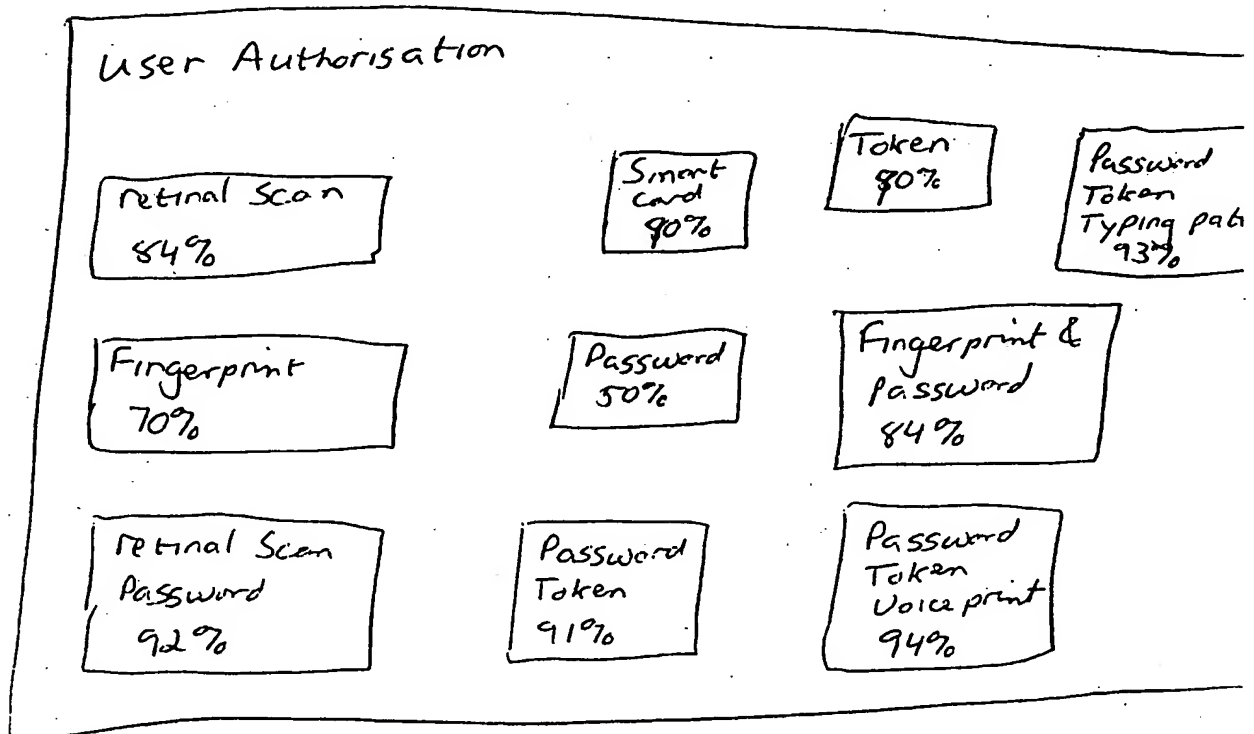 User Authorisation
retinal Scan
84%
Smart
card
Token
Password
Token
Typing pat
93%
Fingerprint
70%
Password
50%
Fingerprint &
Password
84%
retinal Scan
Password
92%
Password
Token
91%
Password
Token
Voice print
94%